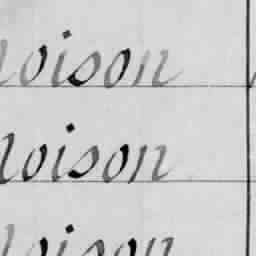 loison
loison
loison